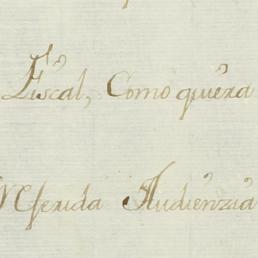 Fiscal, Como quiera
Referida Audienzia